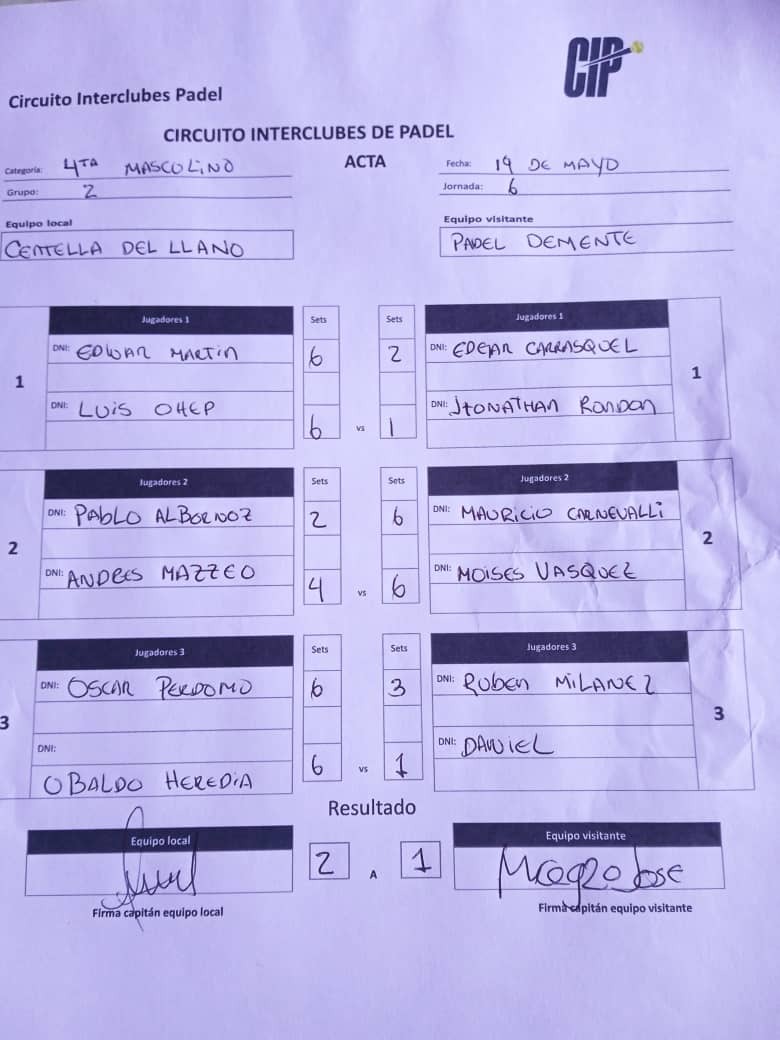 CIP
Circuito Interclubes Padel
CIRCUITO INTERCLUBES DE PADEL
Categoría: 4TA MASCOLINO ACTA Fecha: 19 DE MAYO
Grupo: 2 Jornada: 6
Equipo local Equipo visitante
CENTELLA DEL LLANO PADEL DEMENTE
Jugadores 1 Sets Sets Jugadores 1
1 DNI: EDWAR MARTIN 6 2 DNI: EDGAR CARRASQUEL 1
DNI: LUIS OHEP 6 vs 1 DNI: JHONATHAN RONDON
Jugadores 2 Sets Sets Jugadores 2
2 DNI: PABLO ALBORNOZ 2 6 DNI: MAURICIO CARNEVALLI 2
DNI: ANDRES MAZZEO 4 vs 6 DNI: MOISES VASQUEZ
Jugadores 3 Sets Sets Jugadores 3
3 DNI: OSCAR PERDOMO 6 3 DNI: RUBEN MILANEZ 3
DNI: OBALDO HEREDIA 6 vs 1 DNI: DANIEL
Resultado
Equipo local 2 A 1 Equipo visitante
Jose
Firma capitán equipo local Firma capitán equipo visitante